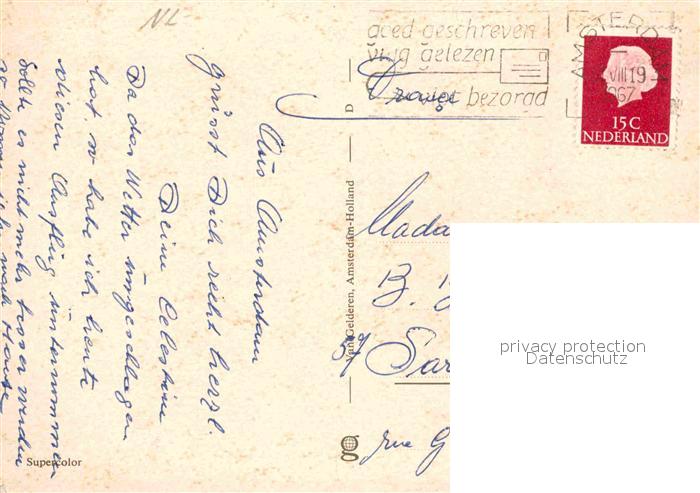 NL
goed geschreven
vlug gelezen
snavel bezorgd
AMSTERDAM
VIII 19
1967
15 C
NEDERLAND
D
Aus Amsterdam
grüsst Dich recht herzl.
Deine Celestine
Da das Wetter umgeschlagen
hat so habe ich heute
diesen Ausflug unternommen
Sollte es nicht mehr besser werden
so
nach Hause
Van Gelderen, Amsterdam-Holland
Mada
B.
57 Sar
rue G
g
Supercolor
privacy protection
Datenschutz